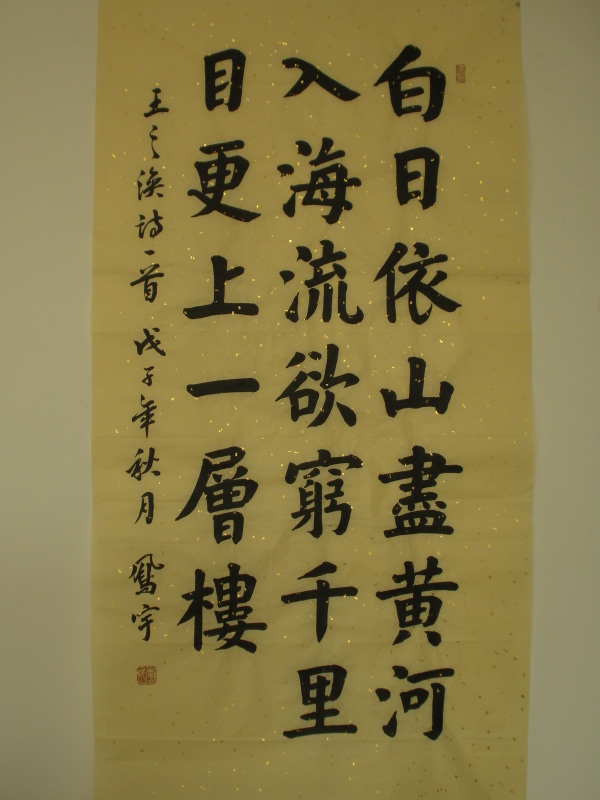 白日依山盡黄河
入海流欲窮千里
目更上一層樓
王之渙詩一首 戊子年秋月 鳳宇